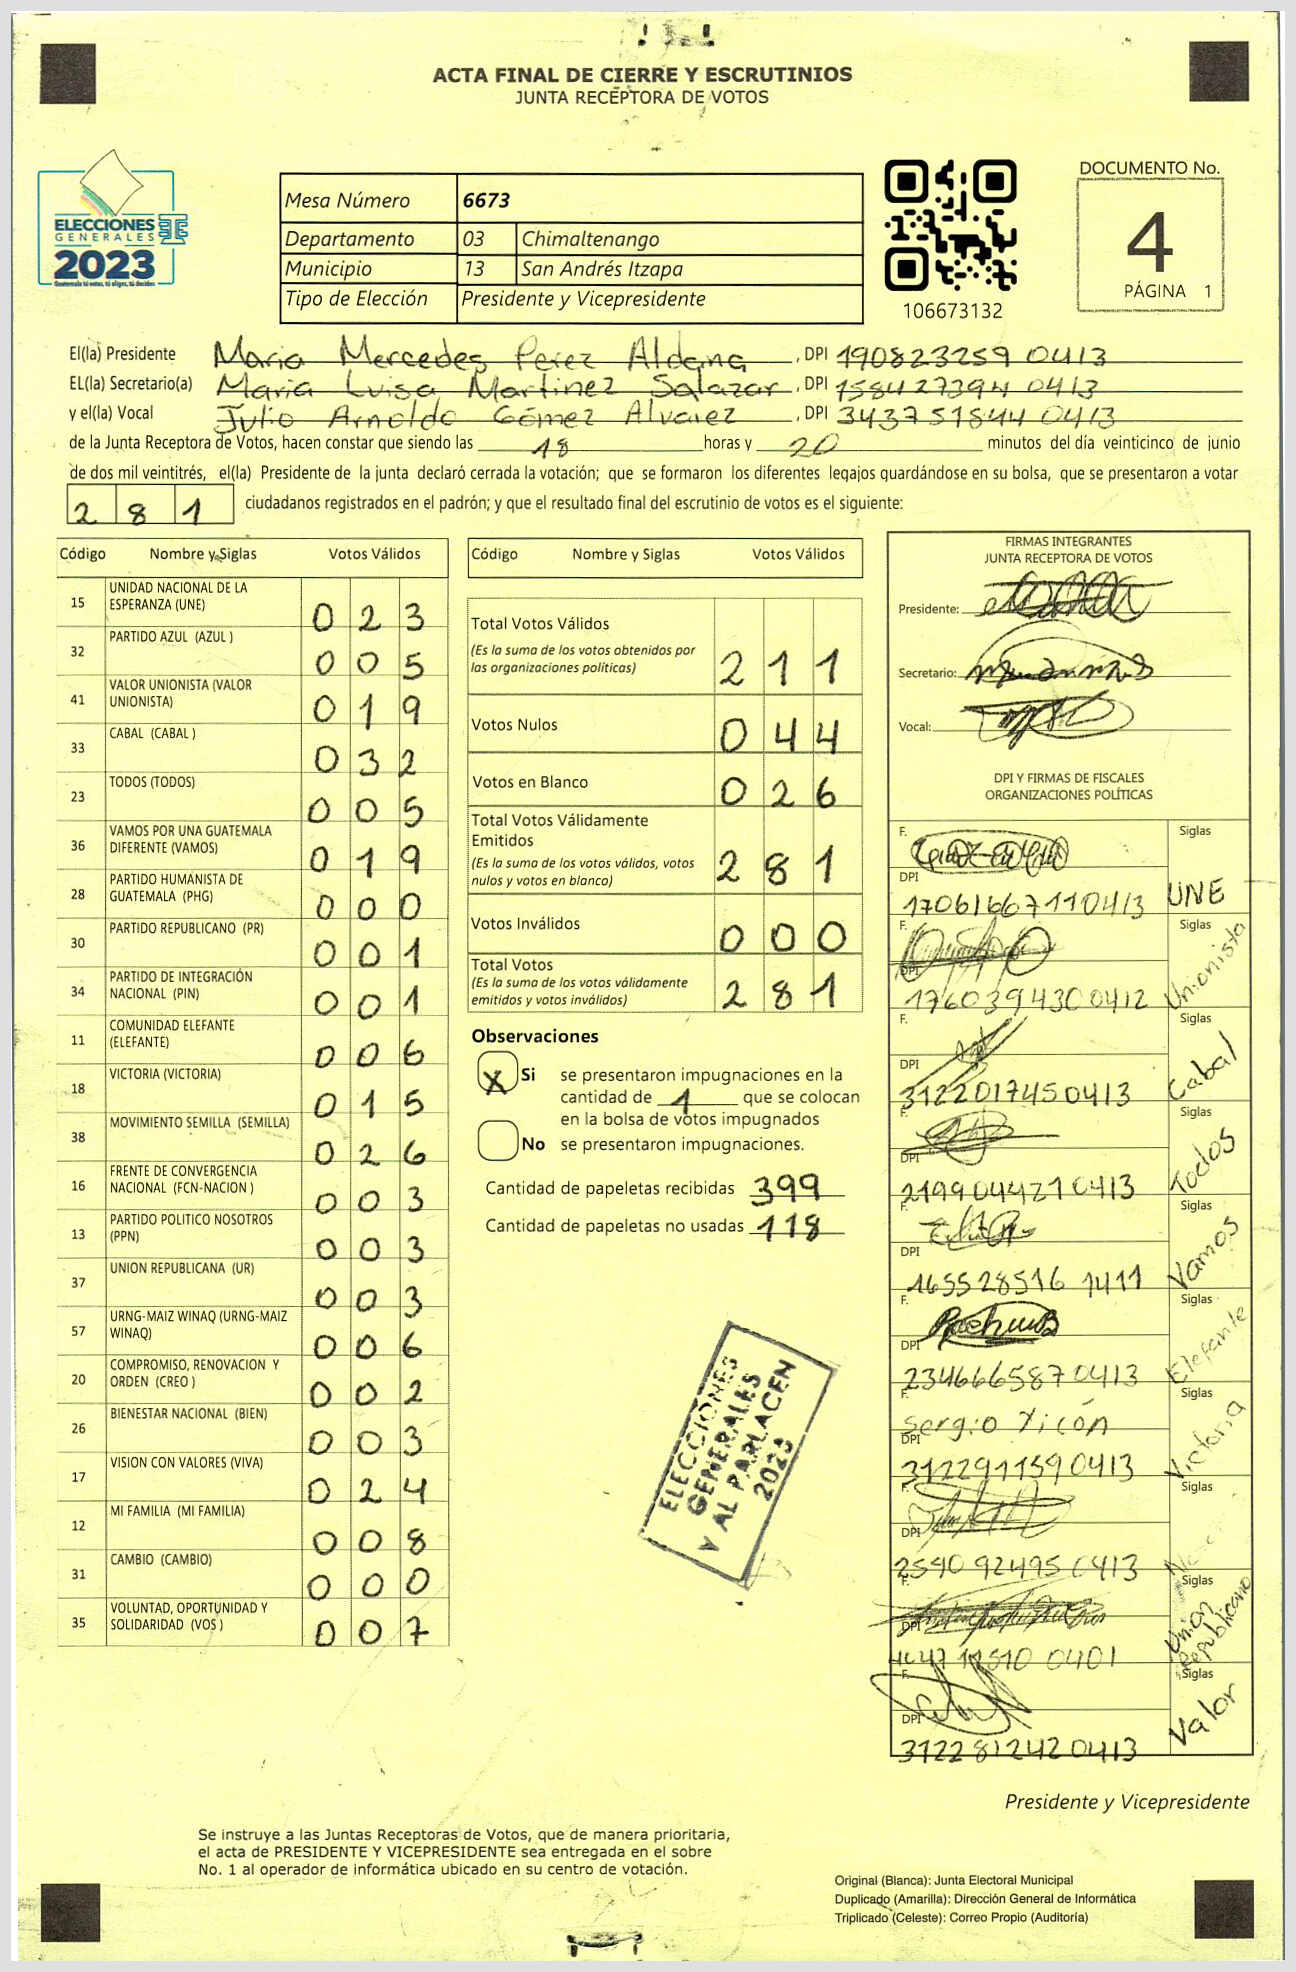 ACTA FINAL DE CIERRE Y ESCRUTINIOS
JUNTA RECEPTORA DE VOTOS
ELECCIONES
GENERALES
2023
Guatemala tú votas, tú eliges, tú decides
Mesa Número 6673
Departamento 03 Chimaltenango
Municipio 13 San Andrés Itzapa
Tipo de Elección Presidente y Vicepresidente
106673132
DOCUMENTO No.
4
PÁGINA 1
El(la) Presidente Maria Mercedes Perez Aldana , DPI 190823259 0413
EL(la) Secretario(a) Maria Luisa Martinez Salazar , DPI 158427394 0413
y el(la) Vocal Julio Arnoldo Gómez Alvarez , DPI 343751844 0413
de la Junta Receptora de Votos, hacen constar que siendo las 18 horas y 20 minutos del día veinticinco de junio
de dos mil veintitrés, el(la) Presidente de la junta declaró cerrada la votación; que se formaron los diferentes legajos quardándose en su bolsa, que se presentaron a votar
281 ciudadanos registrados en el padrón; y que el resultado final del escrutinio de votos es el siguiente:
Código Nombre y Siglas Votos Válidos
15 UNIDAD NACIONAL DE LA ESPERANZA (UNE) 023
32 PARTIDO AZUL (AZUL ) 005
41 VALOR UNIONISTA (VALOR UNIONISTA) 019
33 CABAL (CABAL ) 032
23 TODOS (TODOS) 005
36 VAMOS POR UNA GUATEMALA DIFERENTE (VAMOS) 019
28 PARTIDO HUMANISTA DE GUATEMALA (PHG) 000
30 PARTIDO REPUBLICANO (PR) 001
34 PARTIDO DE INTEGRACIÓN NACIONAL (PIN) 001
11 COMUNIDAD ELEFANTE (ELEFANTE) 006
18 VICTORIA (VICTORIA) 015
38 MOVIMIENTO SEMILLA (SEMILLA) 026
16 FRENTE DE CONVERGENCIA NACIONAL (FCN-NACION ) 003
13 PARTIDO POLITICO NOSOTROS (PPN) 003
37 UNION REPUBLICANA (UR) 003
57 URNG-MAIZ WINAQ (URNG-MAIZ WINAQ) 006
20 COMPROMISO, RENOVACION Y ORDEN (CREO ) 002
26 BIENESTAR NACIONAL (BIEN) 003
17 VISION CON VALORES (VIVA) 024
12 MI FAMILIA (MI FAMILIA) 008
31 CAMBIO (CAMBIO) 000
35 VOLUNTAD, OPORTUNIDAD Y SOLIDARIDAD (VOS ) 007
Código Nombre y Siglas Votos Válidos
Total Votos Válidos
(Es la suma de los votos obtenidos por
las organizaciones políticas) 211
Votos Nulos 044
Votos en Blanco 026
Total Votos Válidamente
Emitidos
(Es la suma de los votos válidos, votos
nulos y votos en blanco) 281
Votos Inválidos 000
Total Votos
(Es la suma de los votos válidamente
emitidos y votos inválidos) 281
Observaciones
X Si se presentaron impugnaciones en la
cantidad de 1 que se colocan
en la bolsa de votos impugnados
No se presentaron impugnaciones.
Cantidad de papeletas recibidas 399
Cantidad de papeletas no usadas 118
ELECCIONES
GENERALES
Y AL PARLACEN
2023
FIRMAS INTEGRANTES
JUNTA RECEPTORA DE VOTOS
Presidente:
Secretario:
Vocal:
DPI Y FIRMAS DE FISCALES
ORGANIZACIONES POLÍTICAS
F. Siglas
DPI 1706166711 0413 UNE
F. Siglas
DPI 176039430 0412 Unionista
F. Siglas
DPI 312201745 0413 Cabal
F. Siglas
DPI 219904421 0413 Todos
F. Siglas
DPI 165528516 1411 Vamos
F. Siglas
DPI 234666587 0413 Elefante
F. Sergio Xicón Siglas
DPI 312291159 0413 Victoria
F. Siglas
DPI 259092495 0413
F. Siglas
DPI 0401 Union Republicano
F. Siglas
DPI 312281242 0413 Valor
Presidente y Vicepresidente
Se instruye a las Juntas Receptoras de Votos, que de manera prioritaria,
el acta de PRESIDENTE Y VICEPRESIDENTE sea entregada en el sobre
No. 1 al operador de informática ubicado en su centro de votación.
Original (Blanca): Junta Electoral Municipal
Duplicado (Amarilla): Dirección General de Informática
Triplicado (Celeste): Correo Propio (Auditoría)